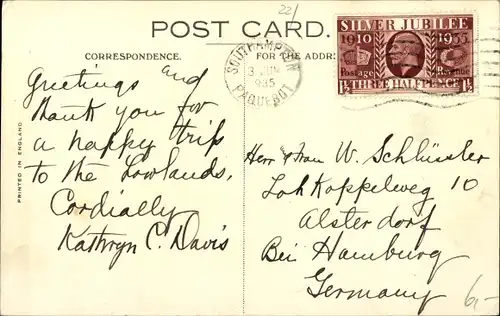 22/
POST CARD.
CORRESPONDENCE.
FOR THE ADDR
SOUTHAMPTON
3 JUN
1935
PAQUEBOT
SILVER JUBILEE
1910 1935
Postage Revenue
1½ THREE HALFPENCE 1½
PRINTED IN ENGLAND
Greetings and
thank you for
a happy trip
to the Lowlands.
Cordially
Kathryn C. Davis
Herr & Frau W. Schlüssler
Loh Koppelweg 10
Alsterdorf
Bei Hamburg
Germany
6,-